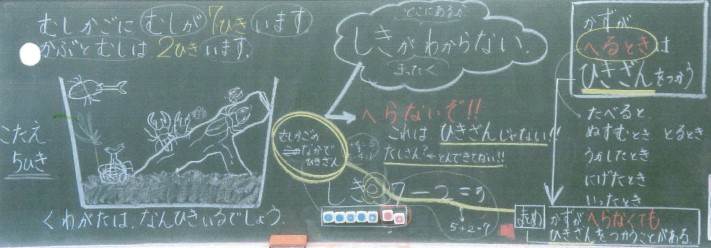 むしかごに むしが 7ひき います
かぶとむしは 2ひき います。
こたえ
5ひき
くわがたは、なんびきいるでしょう。
どこにあるか
しきがわからない。
まったく
へらないぞ!!
これは ひきざんじゃない!!
たしざん?
とんでもない!!
むしかごの
なかで
ひきざん
しき 7-2=5
5+2=7
かずが
へるときは
ひきざんをつかう
たべると
ぬすむとき とるとき
うかしたとき
にげたとき
いったとき
まとめ かずが へらなくても
ひきざんをつかうことがある